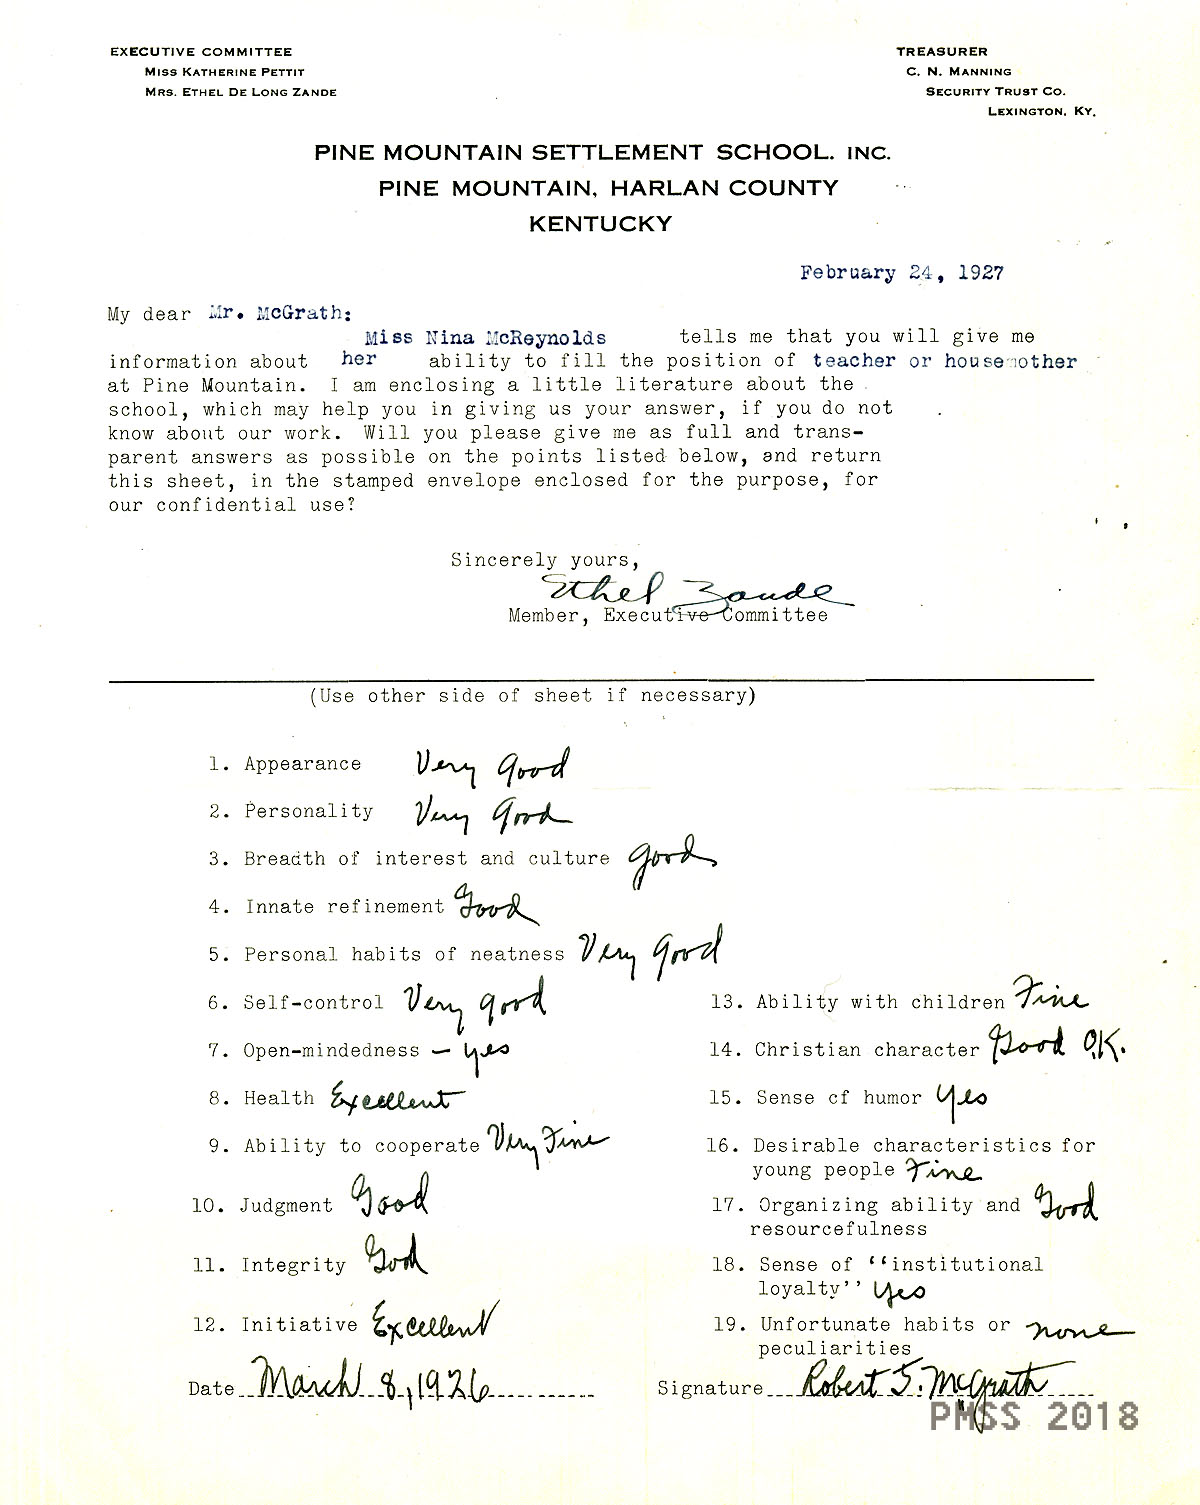 EXECUTIVE COMMITTEE
MISS KATHERINE PETTIT
MRS. ETHEL DE LONG ZANDE
TREASURER
C. N. MANNING
SECURITY TRUST CO.
LEXINGTON, KY.
PINE MOUNTAIN SETTLEMENT SCHOOL. INC.
PINE MOUNTAIN, HARLAN COUNTY
KENTUCKY
February 24, 1927
My dear Mr. McGrath:
Miss Nina McReynolds tells me that you will give me
information about her ability to fill the position of teacher or housemother
at Pine Mountain. I am enclosing a little literature about the
school, which may help you in giving us your answer, if you do not
know about our work. Will you please give me as full and trans-
parent answers as possible on the points listed below, and return
this sheet, in the stamped envelope enclosed for the purpose, for
our confidential use?
Sincerely yours,
Ethel Zande
Member, Executive Committee
(Use other side of sheet if necessary)
1. Appearance Very Good
2. Personality Very Good
3. Breadth of interest and culture Good
4. Innate refinement Good
5. Personal habits of neatness Very Good
6. Self-control Very good
7. Open-mindedness – yes
8. Health Excellent
9. Ability to cooperate Very Fine
10. Judgment Good
11. Integrity Good
12. Initiative Excellent
Date March 8, 1926
13. Ability with children Fine
14. Christian character Good O.K.
15. Sense cf humor Yes
16. Desirable characteristics for
young people Fine
17. Organizing ability and Good
resourcefulness
18. Sense of ‘‘institutional
loyalty’’ Yes
19. Unfortunate habits or none
peculiarities
Signature Robert S. McGrath
PMSS 2018